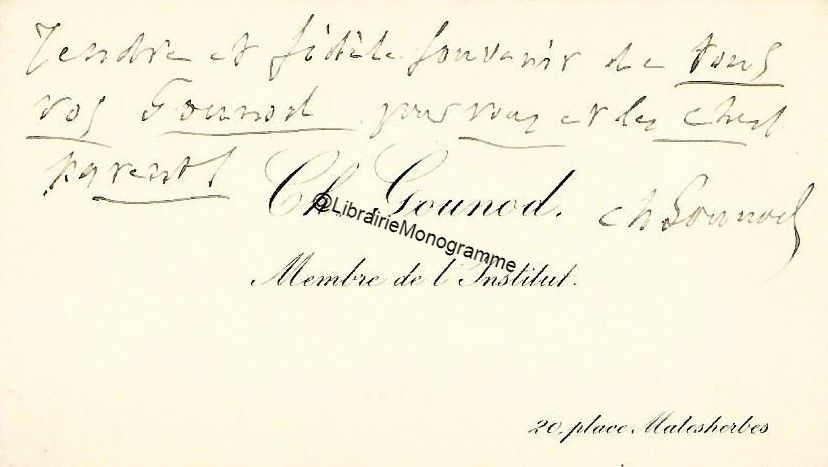 Tendre et fidèle souvenir de tous
vos Gounod pour vous et les chers
parents
Ch. Gounod.
ch Gounod
@LibrairieMonogramme
Membre de l'Institut.
20, place Malesherbes